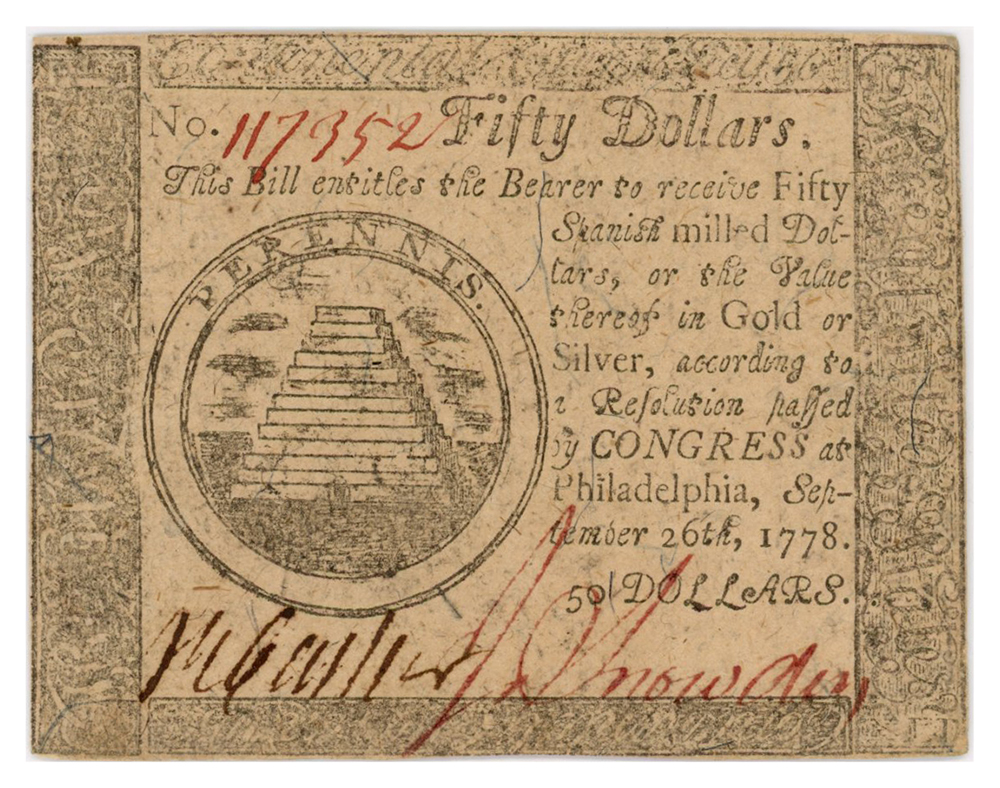 Continental Currency
No. 117352 Fifty Dollars.
This Bill entitles the Bearer to receive Fifty
Spanish milled Dol-
lars, or the Value
thereof in Gold or
Silver, according to
a Resolution passed
by CONGRESS at
Philadelphia, Sep-
tember 26th, 1778.
50 DOLLARS.
PERENNIS.
Snowden